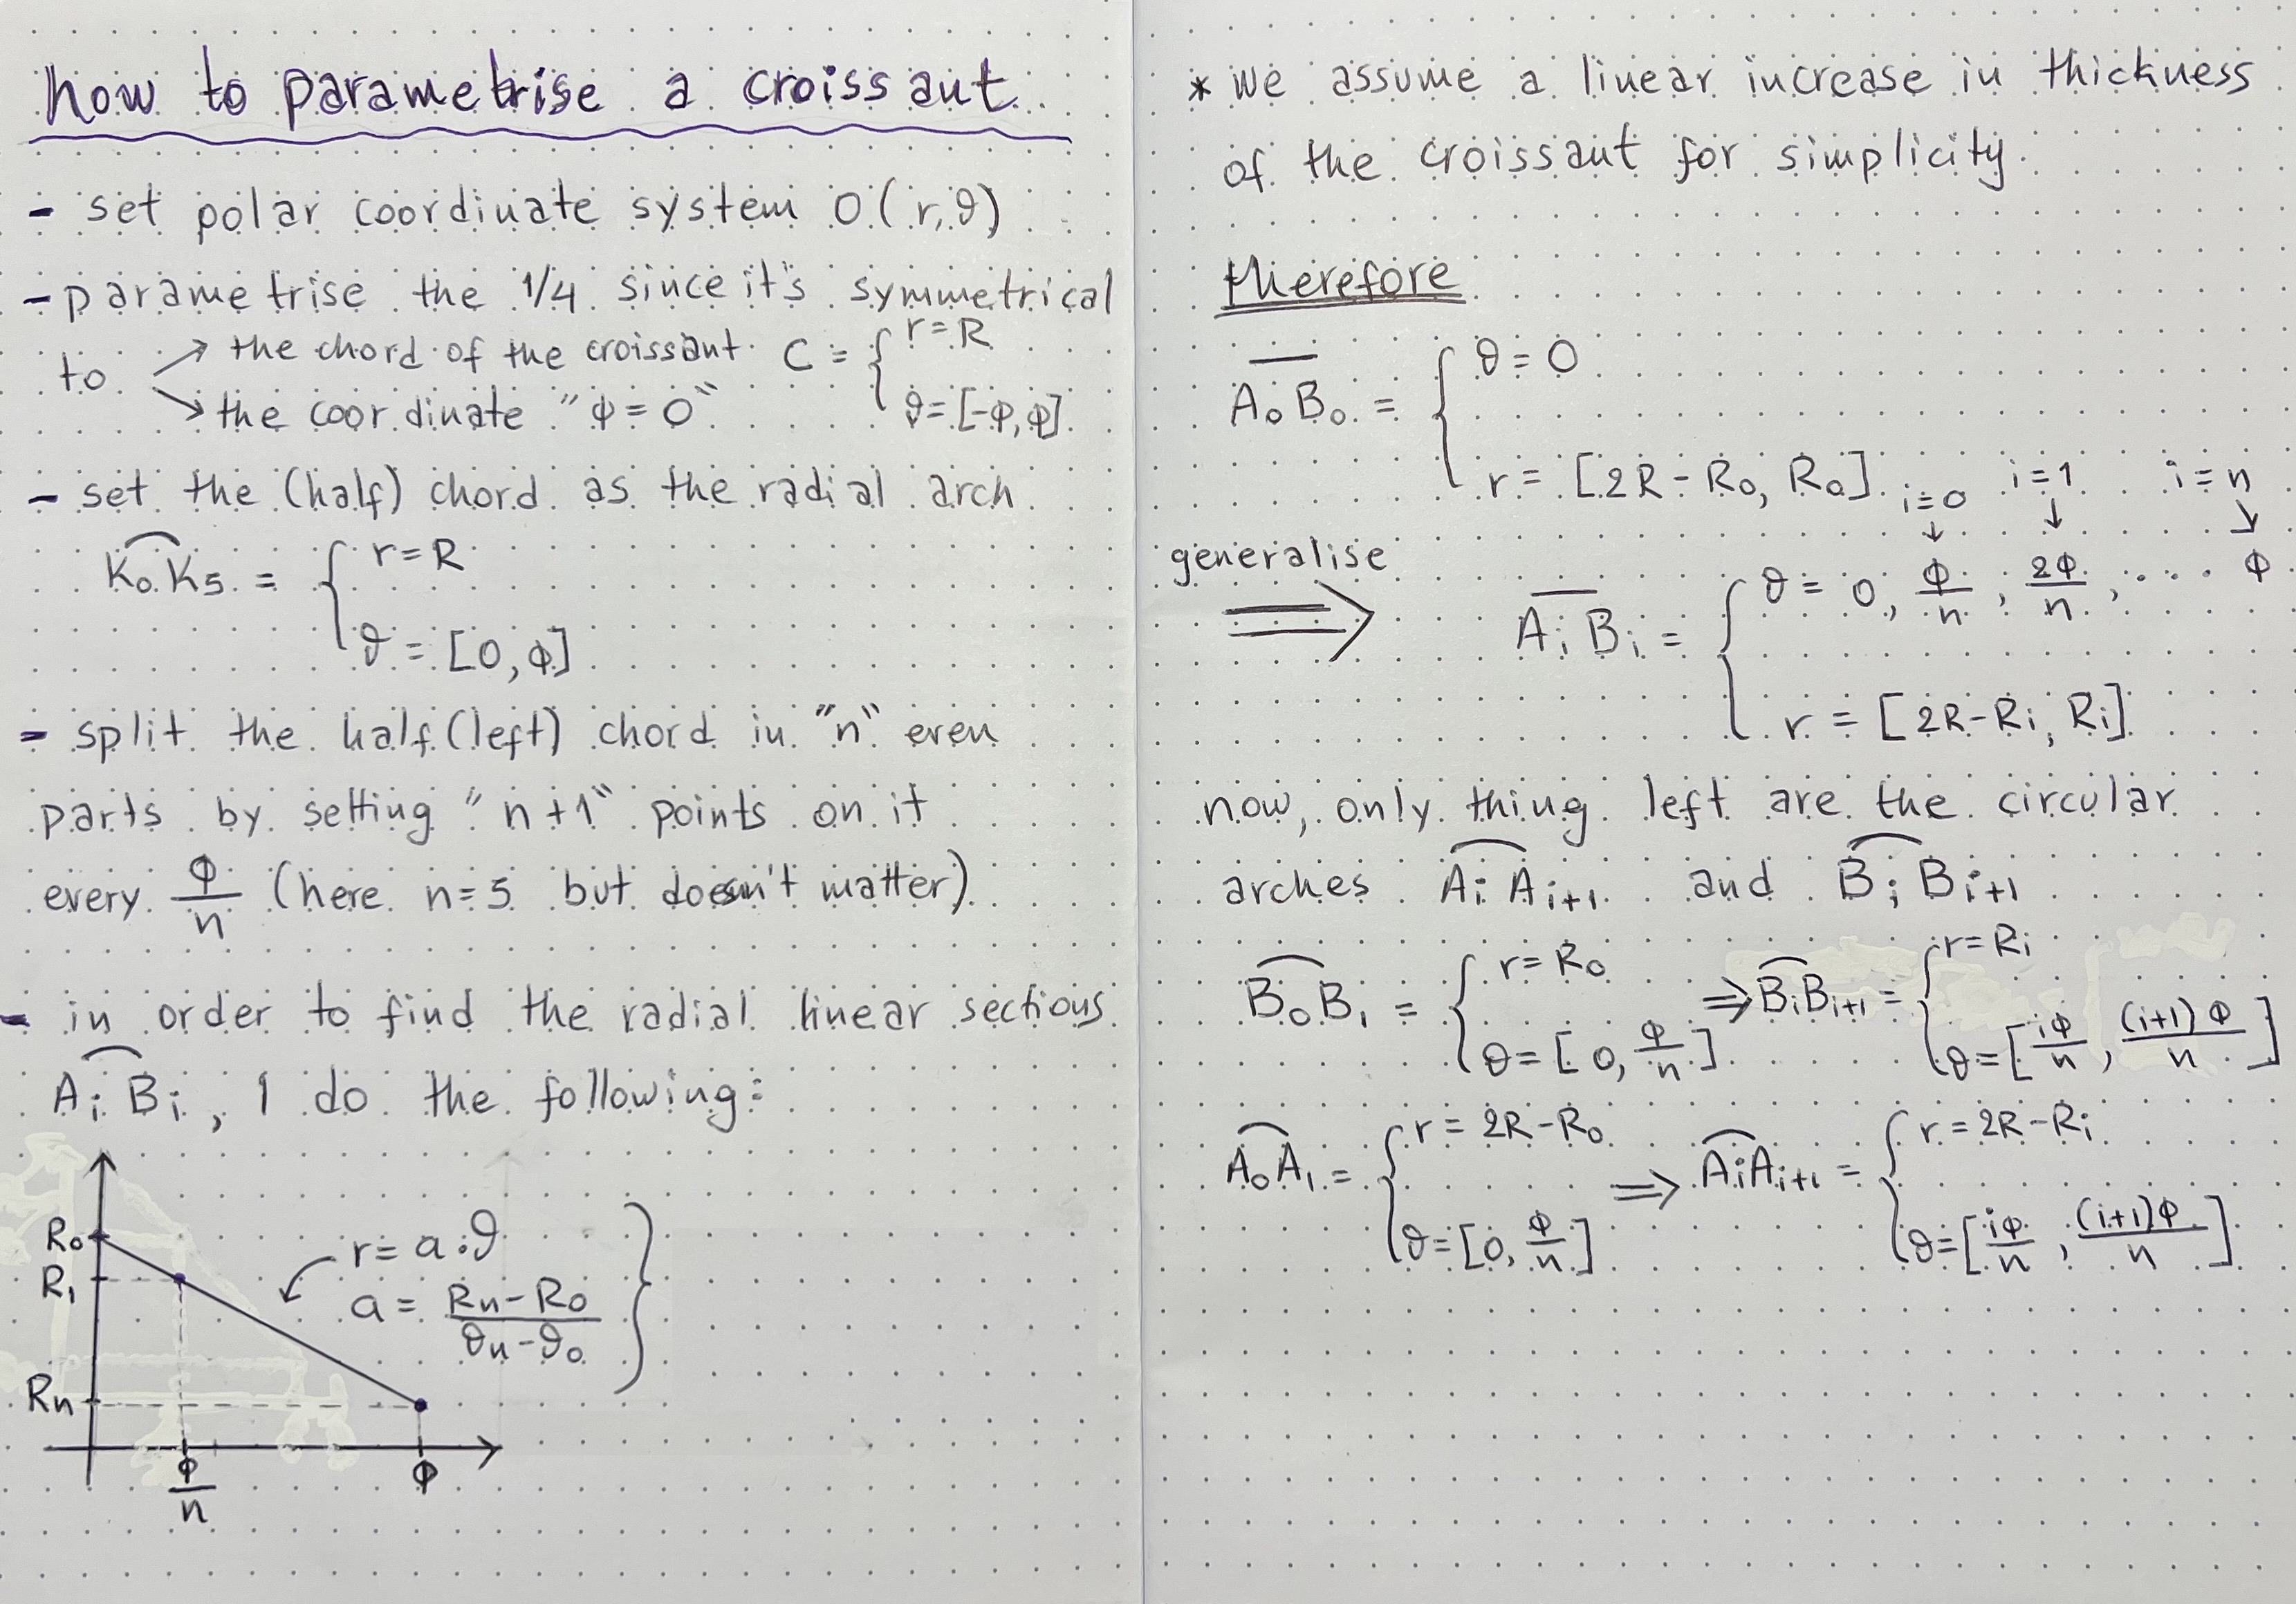 how to parametrise a croissant
- set polar coordinate system O(r,θ)
- parametrise the 1/4 since it's symmetrical
to → the chord of the croissant C = { r=R
→ the coordinate "φ=0" θ=[-φ,φ]
- set the (half) chord as the radial arch
K₀K₅ = { r=R
θ = [0,φ]
- split the half (left) chord in "n" even
parts by setting "n+1" points on it
every φ/n (here n=5 but doesn't matter)
- in order to find the radial linear sections
AᵢBᵢ, I do the following:
R₀
R₁
Rn
r = a·θ
a = (Rn-R₀)/(θn-θ₀) }
φ/n φ
* we assume a linear increase in thickness
of the croissant for simplicity.
therefore
A₀B₀ = { θ=0
r = [2R-R₀, R₀]
i=0 i=1 i=n
generalise ⟹ AᵢBᵢ = { θ = 0, φ/n, 2φ/n, .... φ
r = [2R-Rᵢ, Rᵢ]
now, only thing left are the circular
arches AᵢAᵢ₊₁ and BᵢBᵢ₊₁
B₀B₁ = { r=R₀ θ=[0, φ/n] ⇒ BᵢBᵢ₊₁ = { r=Rᵢ θ=[iφ/n, (i+1)φ/n]
A₀A₁ = { r=2R-R₀ θ=[0, φ/n] ⇒ AᵢAᵢ₊₁ = { r=2R-Rᵢ θ=[iφ/n, (i+1)φ/n]